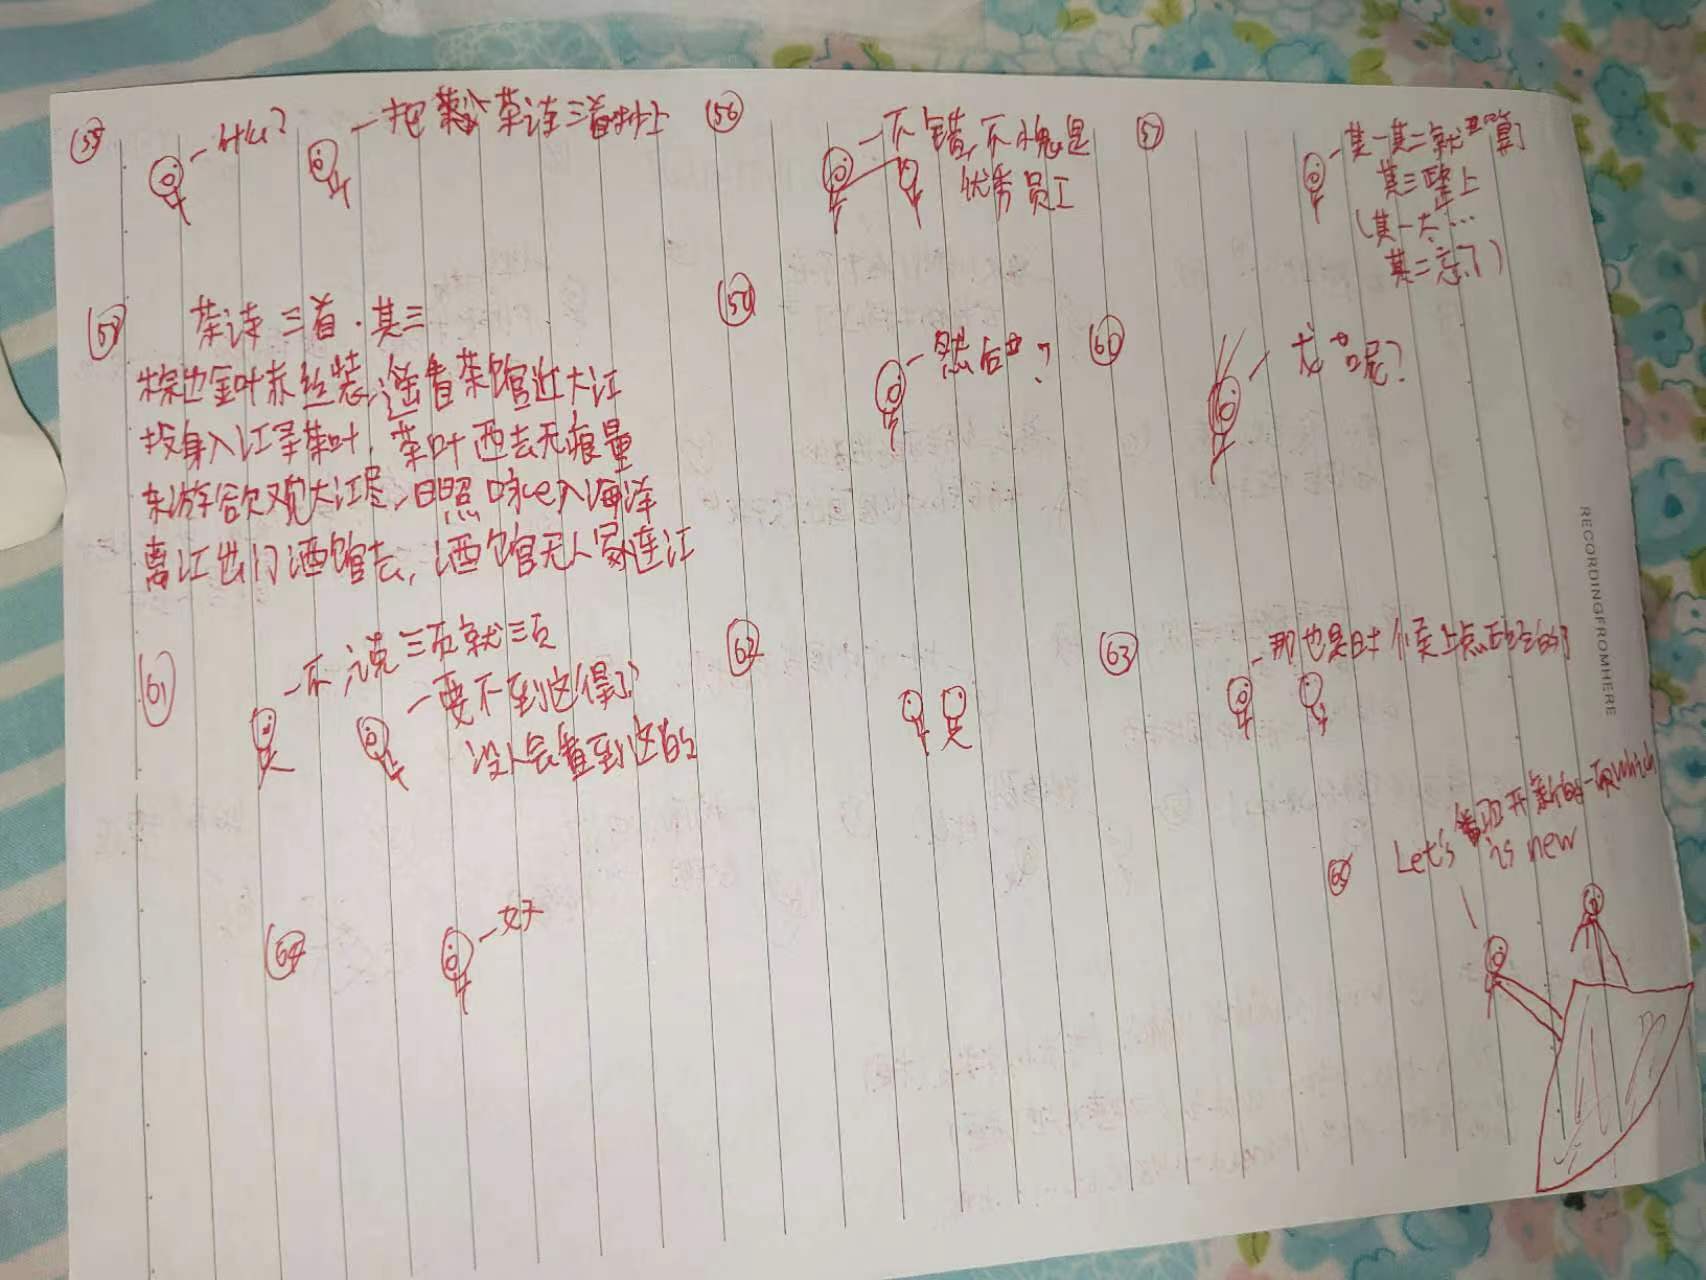 55
什么?
把茶诗三首抄上
56
不错,不愧是
优秀员工
57
其一其二就算了
其三整上
(其一太…
其二忘了)
58
茶诗三首·其三
棕也金叶赤丝装,遥看茶馆近大江
投身入江寻茶叶,茶叶西去无痕量
东游欲观大江尽,日照咏e入海洋
离江出门酒馆去,酒馆无人冢连江
59
然后呢?
60
龙呢?
61
不说三页就三页
要不到这得了
没人会看到这的
62
63
那也是时候上点正经的了
64
好
65
Let's 翻开新的一页which
is new
RECORDINGFROMHERE